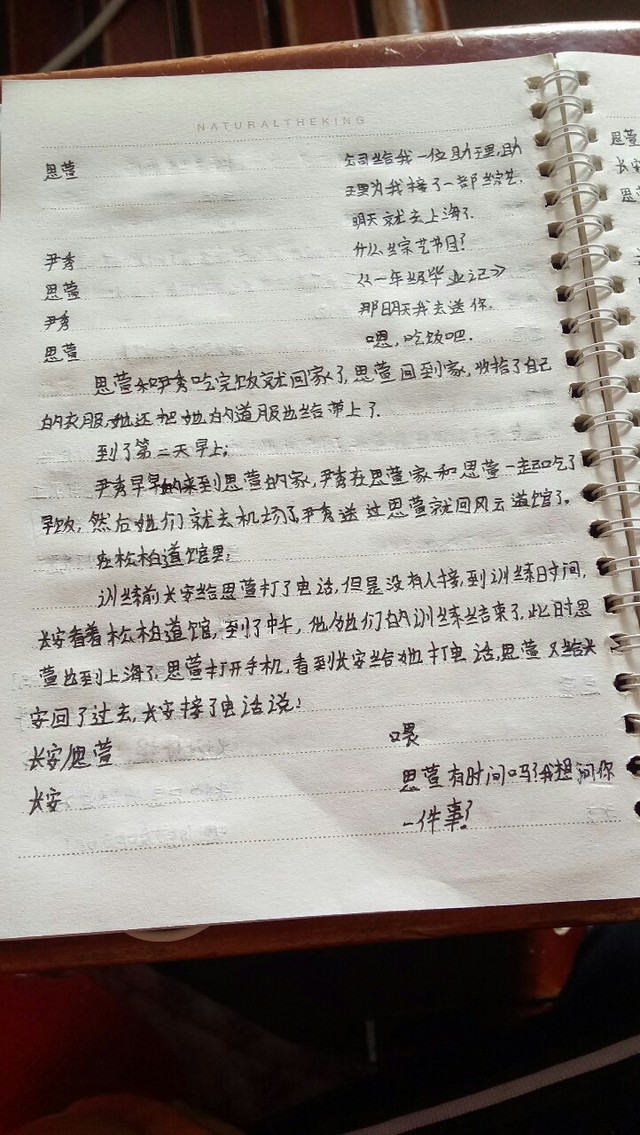 NATURALTHEKING
思萱 公司给我一位助理,助
理为我接了一部综艺.
明天就去上海了.
尹秀 什么综艺节目?
思萱 《一年级毕业记》
尹秀 那明天我去送你.
思萱 嗯,吃饭吧.
思萱和尹秀吃完饭就回家了,思萱回到家,收拾了自己
的衣服,她还把她的道服也给带上了.
到了第二天早上;
尹秀早早的来到思萱的家,尹秀在思萱家和思萱一起吃了
早饭,然后她们就去机场了,尹秀送过思萱就回风云道馆了。
在松柏道馆里;
训练前长安给思萱打了电话,但是没有人接,到训练时间,
长安看着松柏道馆,到了中午,他们的训练结束了,此时思
萱也到上海了,思萱打开手机,看到长安给她打电话,思萱又给长
安回了过去,长安接了电话说:
长安/思萱 喂
长安 思萱有时间吗?我想问你
一件事?
思萱
长安
思